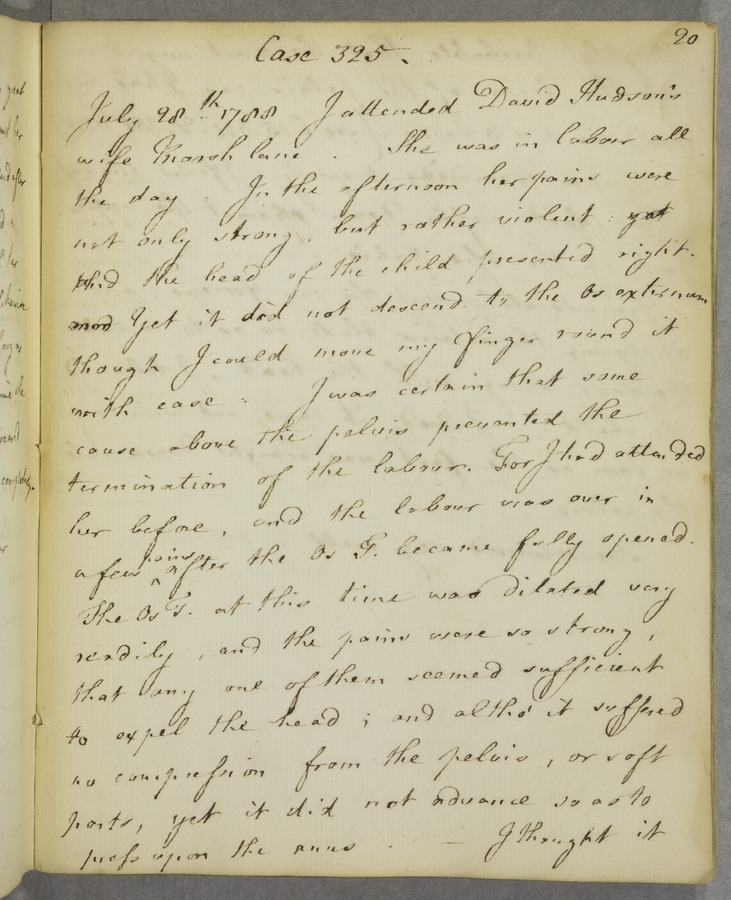 20
Case 325.
July 28th 1788 I attended David Hudson's
wife Marsh lane. She was in labour all
the day. In the afternoon her pains were
not only strong, but rather violent: yet
the head of the child presented right.
Yet it did not descend to the Os externum
though I could move my finger round it
with ease: I was certain that some
cause above the pelvis prevented the
termination of the labour. For I had attended
her before, and the labour was over in
a few pains after the Os T. became fully opened.
The Os T. at this time was dilated very
readily, and the pains were so strong,
that any one of them seemed sufficient
to expel the head; and altho' it suffered
no compression from the pelvis, or soft
parts, yet it did not advance so as to
press upon the anus. — I thought it